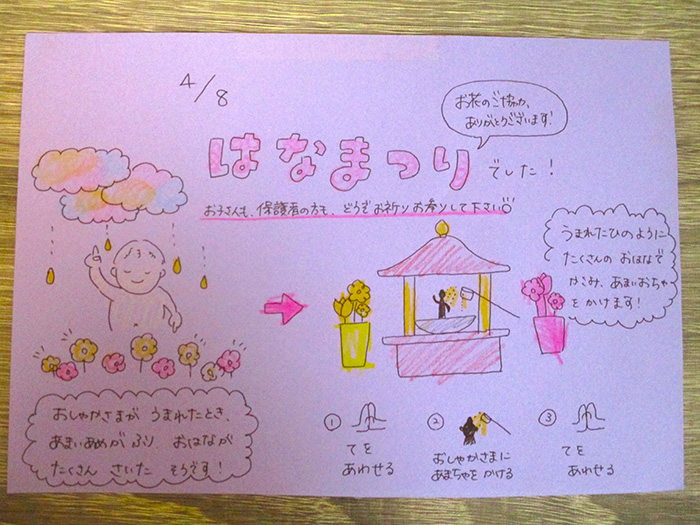 4/8
お花のご協力、
ありがとうございます!
はなまつり でした!
お子さんも、保護者の方も、どうぞお祈りお参りして下さい
うまれたひのように
たくさんの おはなで
かこみ、あまいおちゃ
をかけます!
おしゃかさまが うまれたとき、
あまいあめが ふり おはなが
たくさん さいた そうです!
① てを
あわせる
② おしゃかさまに
あまちゃを かける
③ てを
あわせる